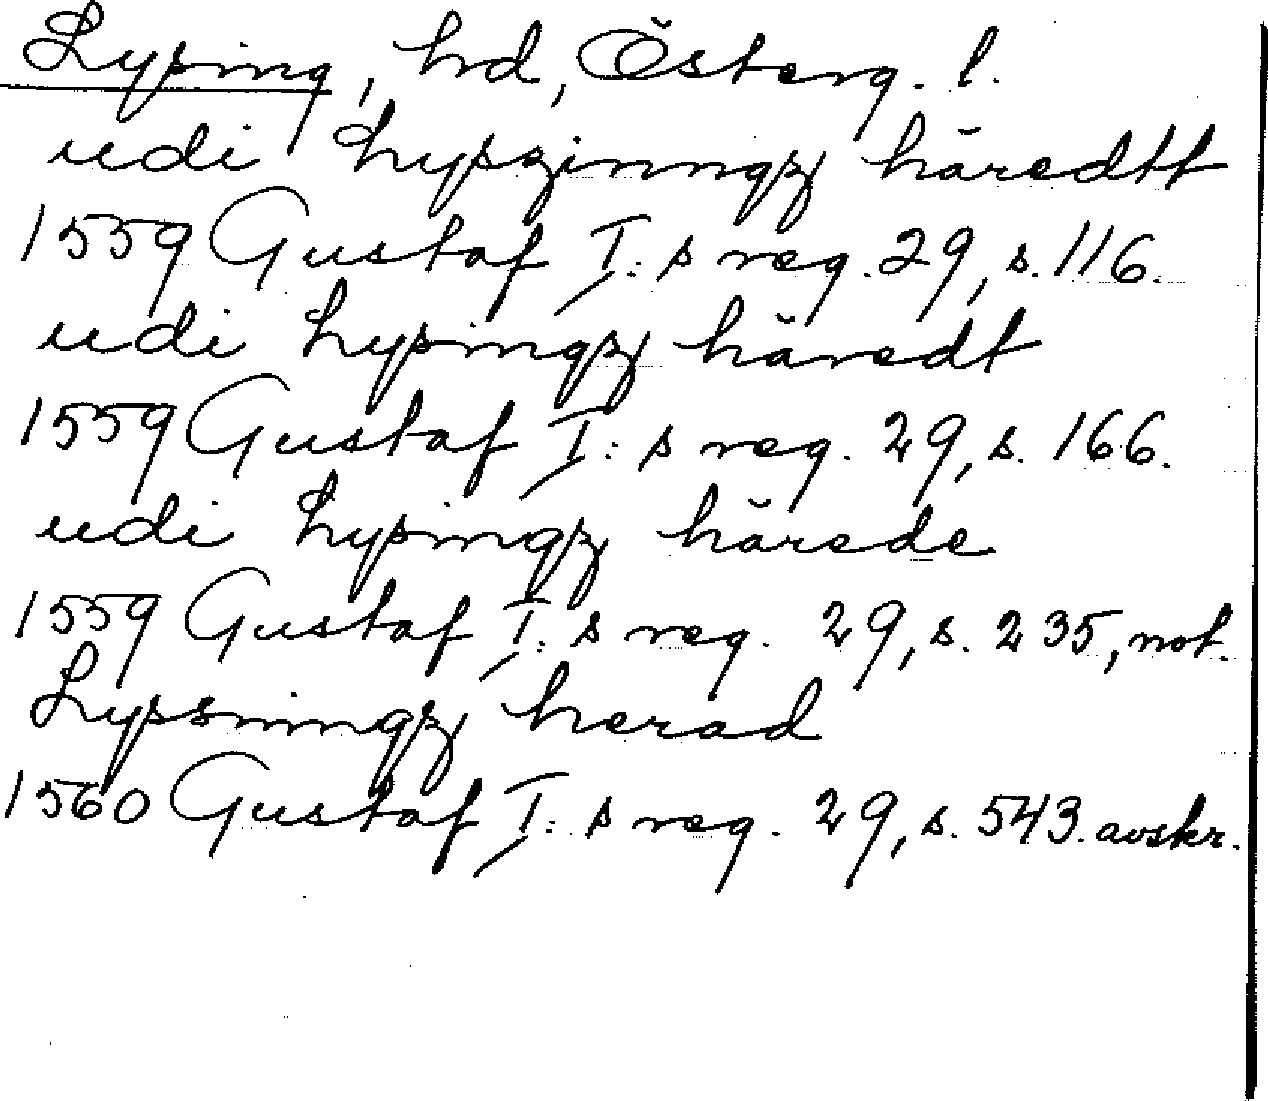 Lysing, hd, Österg. l.
udi Lyszinngz häredtt
1559 Gustaf I:s reg. 29, s. 116.
udi Lysingz häredt
1559 Gustaf I:s reg. 29, s. 166.
udi Lysingz härede
1559 Gustaf I:s reg. 29, s. 235, not.
Lyssinngz herad
1560 Gustaf I:s reg. 29, s. 543. avskr.